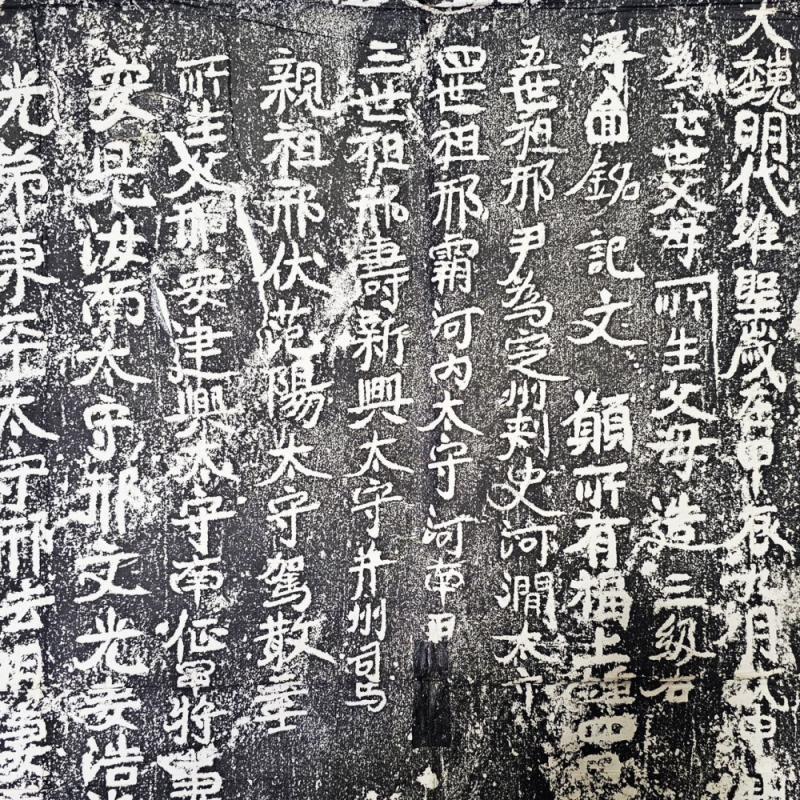 大魏明代維聖歲在甲辰九月戊申
為七世父母所生父母造三級石
浮啚銘記文願所有福上鍾四
五世祖邢尹為定州刾史河澗太守
四世祖邢霸河內太守河南
三世祖邢壽新興太守并州司馬
親祖邢伏范陽太守駕散
所生父邢安建興太守南征將軍
安兄汝南太守邢文光妻浩
光弟東太守邢玄明妻